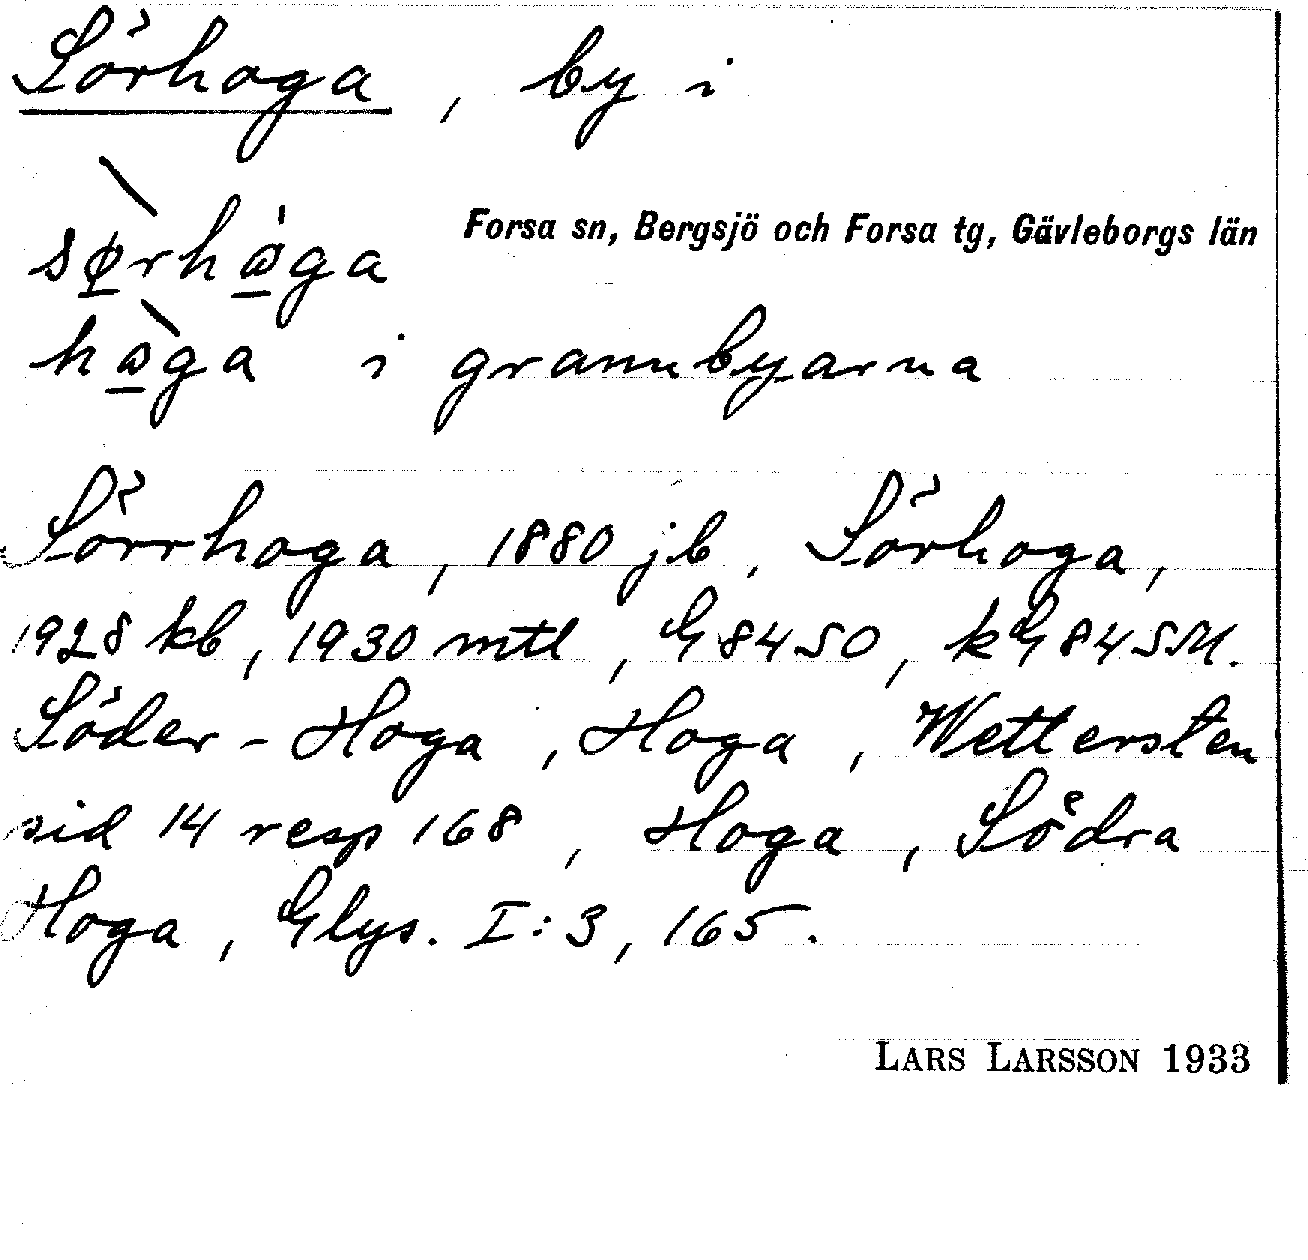 Sörhoga, by i
sø̱̀rhω̱̍ga
Forsa sn, Bergsjö och Forsa tg, Gävleborgs län
hὼ̱ga i grannbyarna
Sörrhoga, 1880 jb, Sörhoga,
1928 kb, 1930 mtl, G 84 SO, kG 84 SM.
Söder-Hoga, Hoga, Wettersten
sid 14 resp 168, Hoga, Södra
Hoga, Glys. I:3, 165.
LARS LARSSON 1933